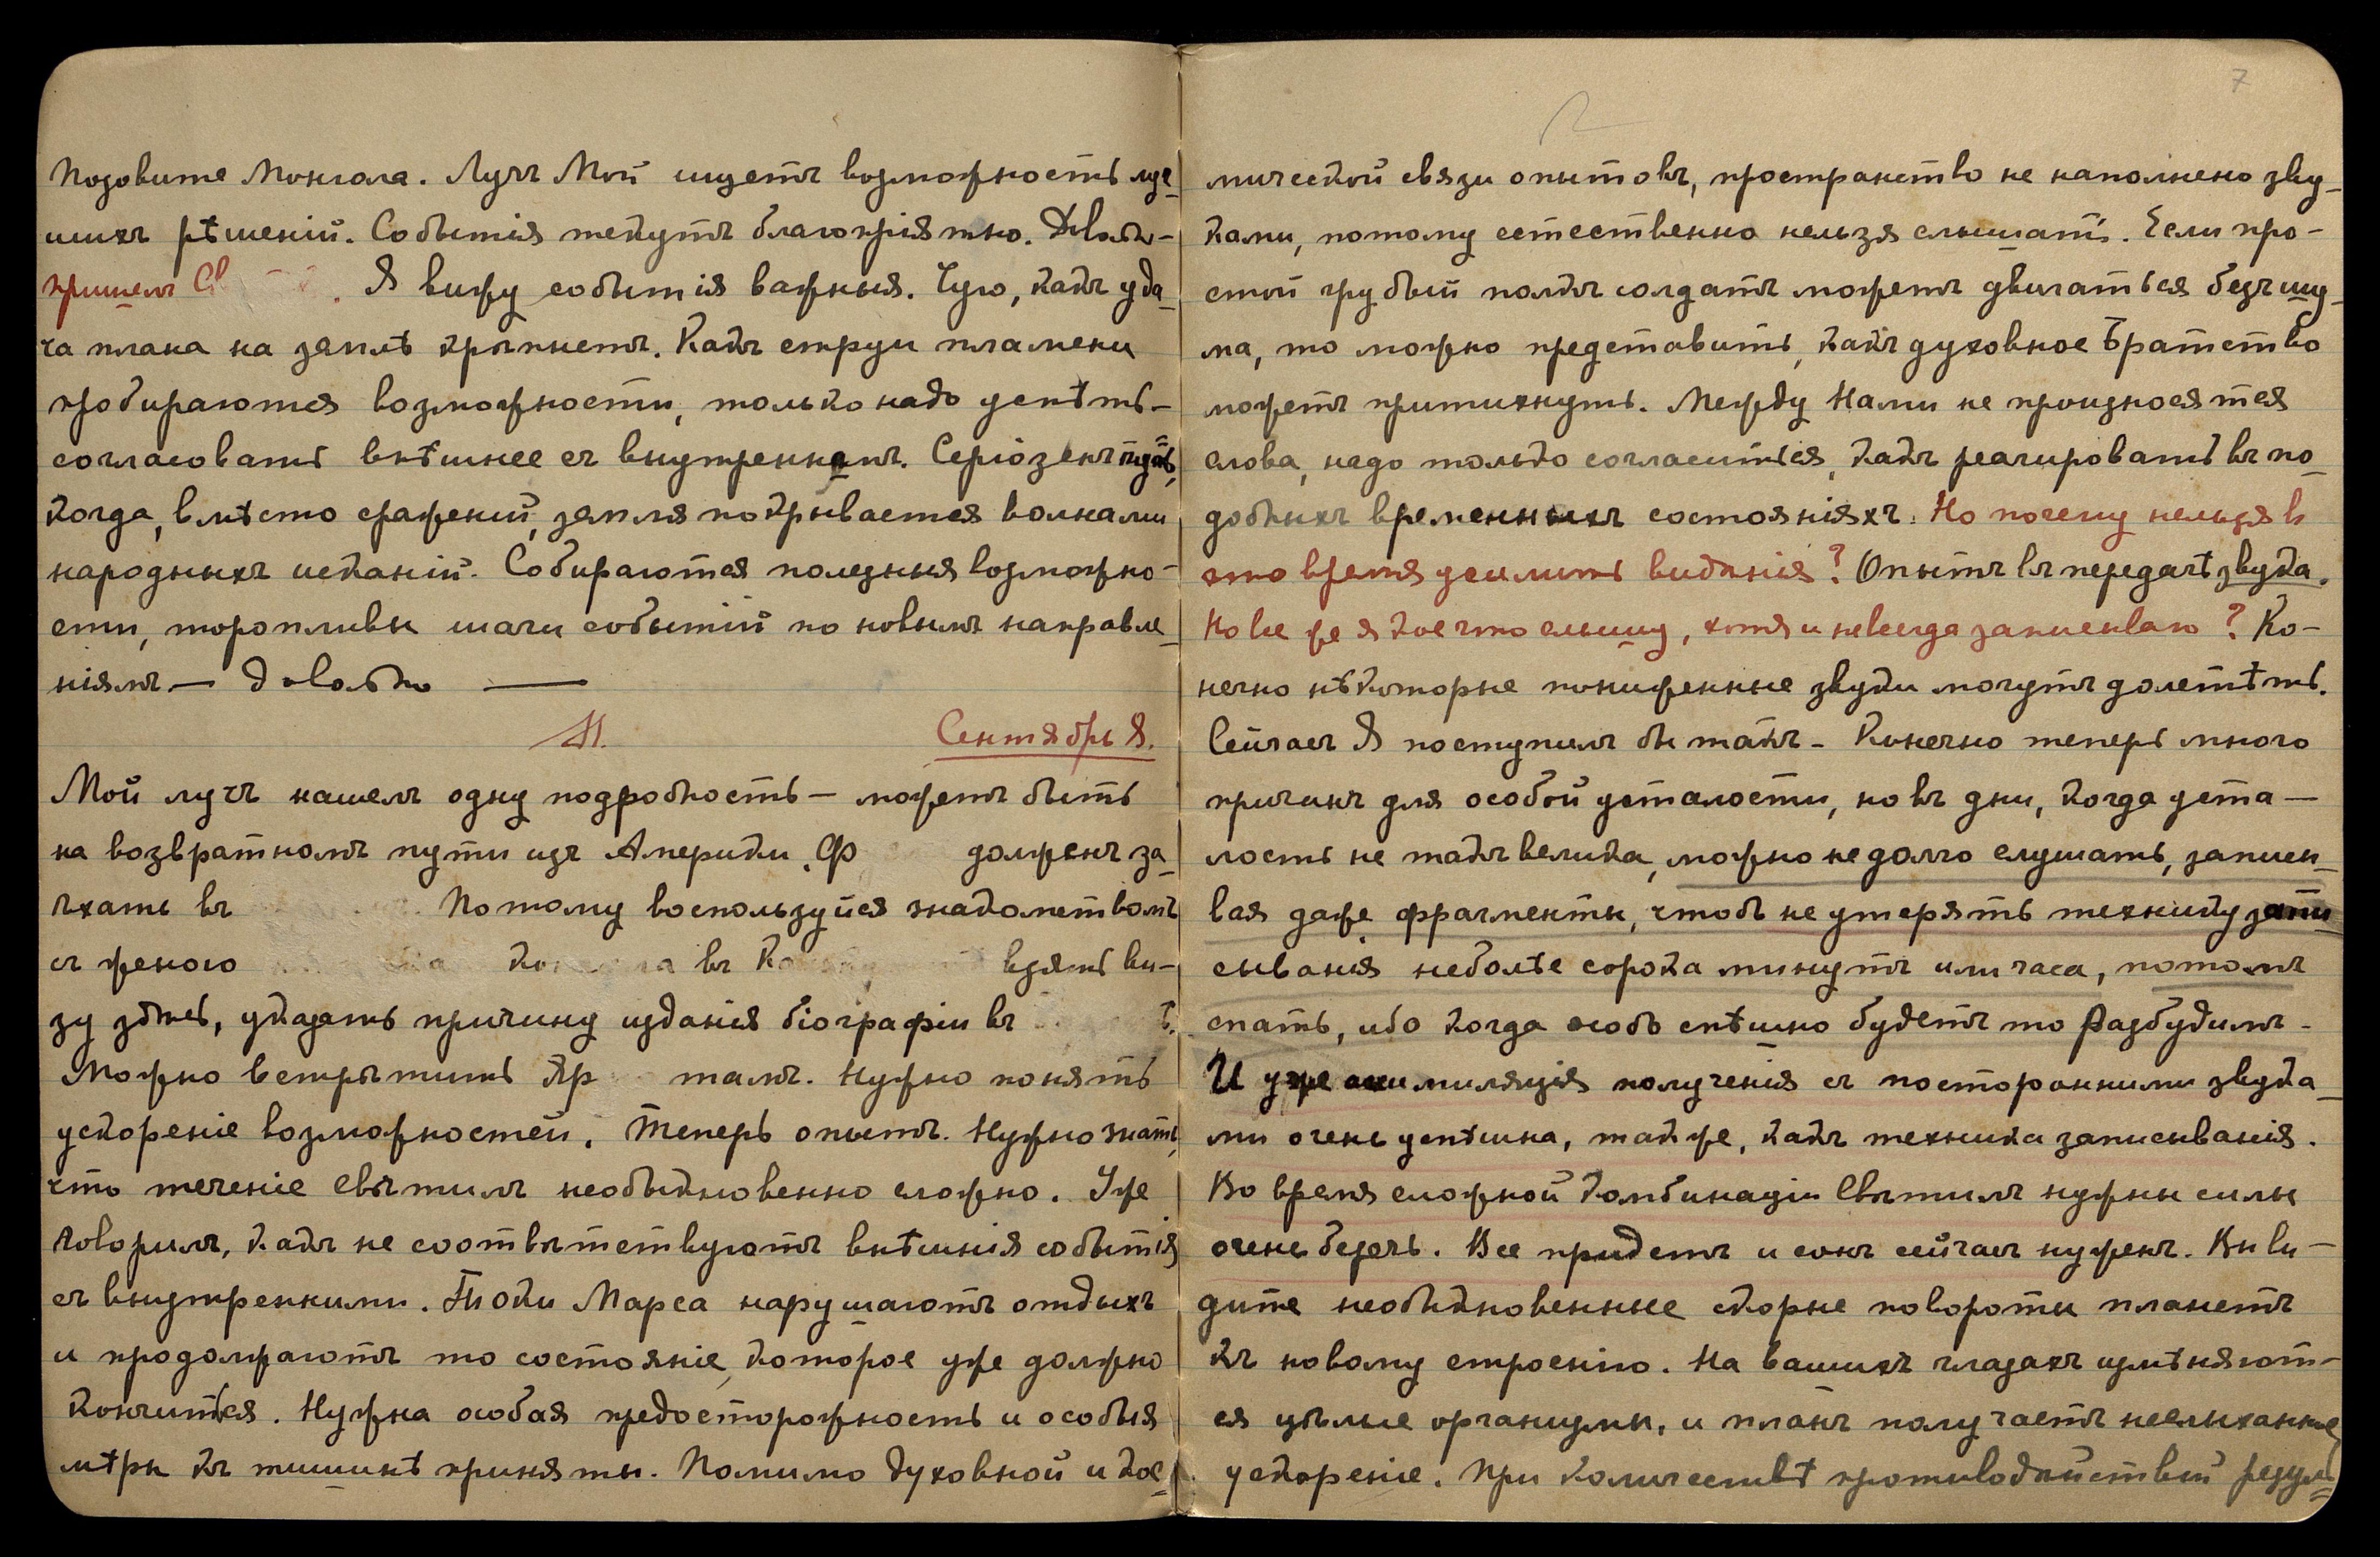 Позовите Монгола. Лучъ Мой ищетъ возможность луч-
шихъ рѣшеній. Событія текутъ благопріятно. Довольно-
пришелъ Св . Я вижу событія важныя. Чую, какъ уда-
ча плана на землѣ крѣпнетъ. Какъ струи пламени
пробираются возможности, только надо успѣть-
согласовать внѣшнее съ внутреннимъ. Серіозенъ путь,
когда, вмѣсто сраженій, земля покрывается волнами
народныхъ исканій. Собираются полезныя возможно-
сти, торопливы шаги событій по новымъ направле-
ніямъ — довольно —
11. Сентября.
Мой лучъ нашелъ одну подробность — можетъ быть
на возвратномъ пути изъ Америки. Ф долженъ за-
ѣхать въ Потому воспользуйся знакомствомъ
съ женою въ взять ви-
зу здѣсь, указать причину изданія біографіи въ
Можно встрѣтить Яр тамъ. Нужно понять
ускореніе возможностей. Теперь опытъ. Нужно знать,
что теченіе Свѣтилъ необыкновенно сложно. Уже
говорилъ, какъ не соотвѣтствуютъ внѣшнія событія
съ внутренними. Токи Марса нарушаютъ отдыхъ
и продолжаютъ то состояніе, которое уже должно
кончиться. Нужна особая предосторожность и особыя
мѣры къ тишинѣ приняты. Помимо духовной и кос-
7
мической связи опытовъ, пространство не наполнено зву-
ками, потому естественно нельзя слышать. Если про-
стой грубый полкъ солдатъ можетъ двигаться безъ шу-
ма, то можно представить, какъ духовное Братство
можетъ притихнуть. Между Нами не произносятся
слова, надо только согласиться, какъ реагировать въ по-
добныхъ временныхъ состояніяхъ. Но почему нельзя в
это время усилить видѣнія? Опытъ въ передачѣ звука.
Но все же я кое что слышу, хотя и невсегда записываю? Ко-
нечно нѣкоторые пониженные звуки могутъ долетѣть.
Сейчасъ Я поступилъ бы такъ — Конечно теперь много
причинъ для особой усталости, но въ дни, когда уста-
лость не такъ велика, можно недолго слушать, записы-
вая даже фрагменты, чтобъ не утерять технику запи-
сыванія неболѣе сорока минутъ или часа, потомъ
спать, ибо когда особъ спѣшно будетъ то Разбудимъ-
И уже ассимиляція полученія съ посторонними звука-
ми очень успѣшна, также, какъ техника записыванія.
Во время сложной комбинаціи Свѣтилъ нужны силы
очень беречь. Все придетъ и сонъ сейчасъ нуженъ. Вы ви-
дите необыкновенные скорые повороты планетъ
къ новому строенію. На вашихъ глазахъ измѣняют-
ся цѣлые организмы, и планъ получаетъ неслыханные
ускореніе. При количествѣ противодѣйствій резуль-